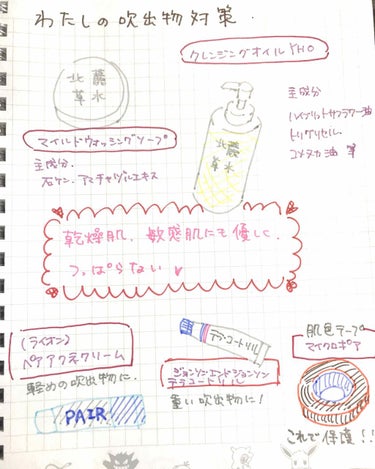 わたしの吹出物対策.
クレンジングオイルYHO
北麓
草水
マイルドウォッシングソープ
主成分.
石ケン.アマチャヅルエキス
北麓
草水
主成分
ハイブリットサフラワー油
トリグリセル.
コメヌカ油 等
乾燥肌、敏感肌にも優しく.
つっぱらない
(ライオン)
ペアアクネクリーム
軽めの吹出物に.
PAIR
テラコートリル
ジョンソンエンドジョンソン
テラコートリル
重い吹出物に!
肌色テープ
マイクロポア
これで保護!!